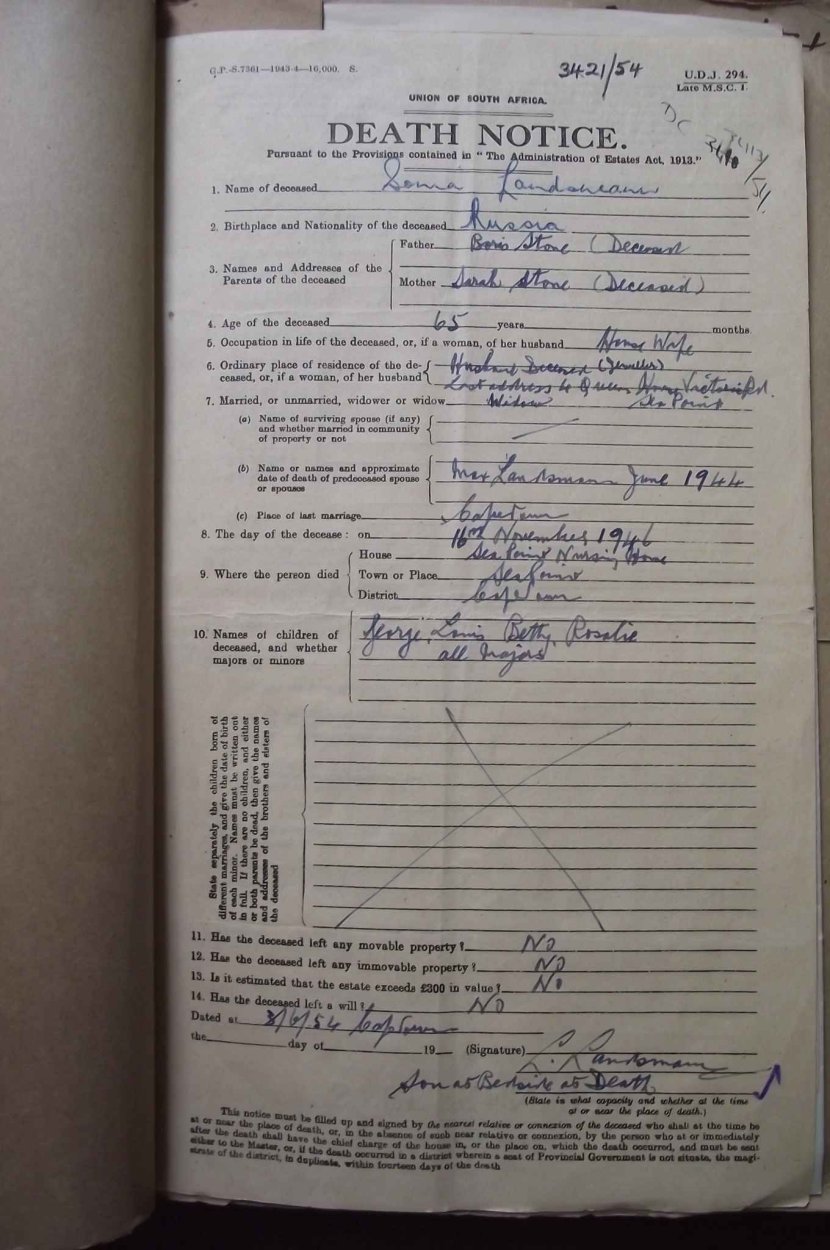 G.P.-S.7361—1943-4—16,000. S.
3421/54
U.D.J. 294.
Late M.S.C. 1.
UNION OF SOUTH AFRICA.
DC
DEATH NOTICE.
Pursuant to the Provisions contained in "The Administration of Estates Act, 1913."
1. Name of deceased Sonia Landsmann
2. Birthplace and Nationality of the deceased Russia
3. Names and Addresses of the Parents of the deceased
Father Boris Stone (Deceased
Mother Sarah Stone (Deceased)
4. Age of the deceased 65 years months
5. Occupation in life of the deceased, or, if a woman, of her husband House Wife
6. Ordinary place of residence of the de-
ceased, or, if a woman, of her husband
Husband Deceased (Jeweller)
Last address 4 Queens Victoria Rd.
7. Married, or unmarried, widower or widow Widow Sea Point
(a) Name of surviving spouse (if any)
and whether married in community
of property or not
(b) Name or names and approximate
date of death of predeceased spouse
or spouses
Max Landsmann June 1944
(c) Place of last marriage Cape Town
8. The day of the decease: on 16th November 1946
9. Where the person died
House Sea Point Nursing Home
Town or Place Sea Point
District Cape Town
10. Names of children of
deceased, and whether
majors or minors
George, Louis, Betty, Rosalie
all Majors
State separately the children born of
different marriages, and give the date of birth
of each minor. Names must be written out
in full. If there are no children, and either
or both parents be dead, then give the names
and addresses of the brothers and sisters of
the deceased
11. Has the deceased left any movable property? No
12. Has the deceased left any immovable property? No
13. Is it estimated that the estate exceeds £300 in value? No
14. Has the deceased left a will? No
Dated at 3/6/54 Cape Town
the day of 19 (Signature) L. Landsmann
Son at Bedside at Death
(State in what capacity and whether at the time
at or near the place of death.)
This notice must be filled up and signed by the nearest relative or connexion of the deceased who shall at the time be
at or near the place of death, or, in the absence of such near relative or connexion, by the person who at or immediately
after the death shall have the chief charge of the house in, or the place on, which the death occurred, and must be sent
either to the Master, or, if the death occurred in a district wherein a seat of Provincial Government is not situate, the magi-
strate of the district, in duplicate, within fourteen days of the death